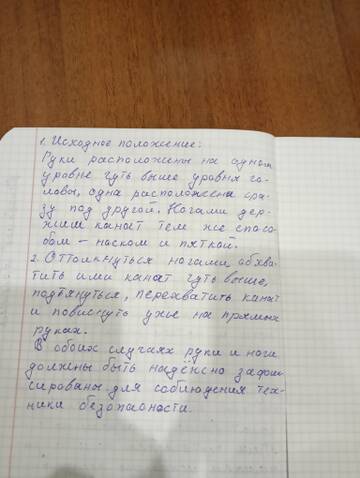 1. Исходное положение:
Руки расположены на одном
уровне чуть выше уровня го-
ловы, одна расположена сра-
зу под другой. Ногами дер-
жим канат тем же спосо-
бом – носком и пяткой.
2. Оттолкнуться ногами обхва-
тить ими канат чуть выше,
подтянуться, перехватить канат
и повиснуть уже на прямых
руках.
В обоих случаях руки и ноги
должны быть надёжно зафик-
сированы для соблюдения тех-
ники безопасности.